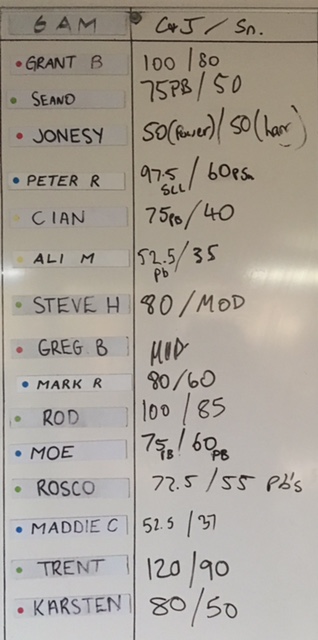 6 AM C+J / Sn.
GRANT B 100 / 80
SEANO 75PB / 50
JONESY 50(Power) / 50(han)
PETER R 97.5 / 60PSn
SLL
CIAN 75PB / 40
ALI M 52.5 / 35
pb
STEVE H 80 / MOD
GREG B MOD
MARK R 80/60
ROD 100 / 85
MOE 75 / 60
PB PB
ROSCO 72.5 / 55 Pb's
MADDIE C 52.5 / 37
TRENT 120/90
KARSTEN 80/50